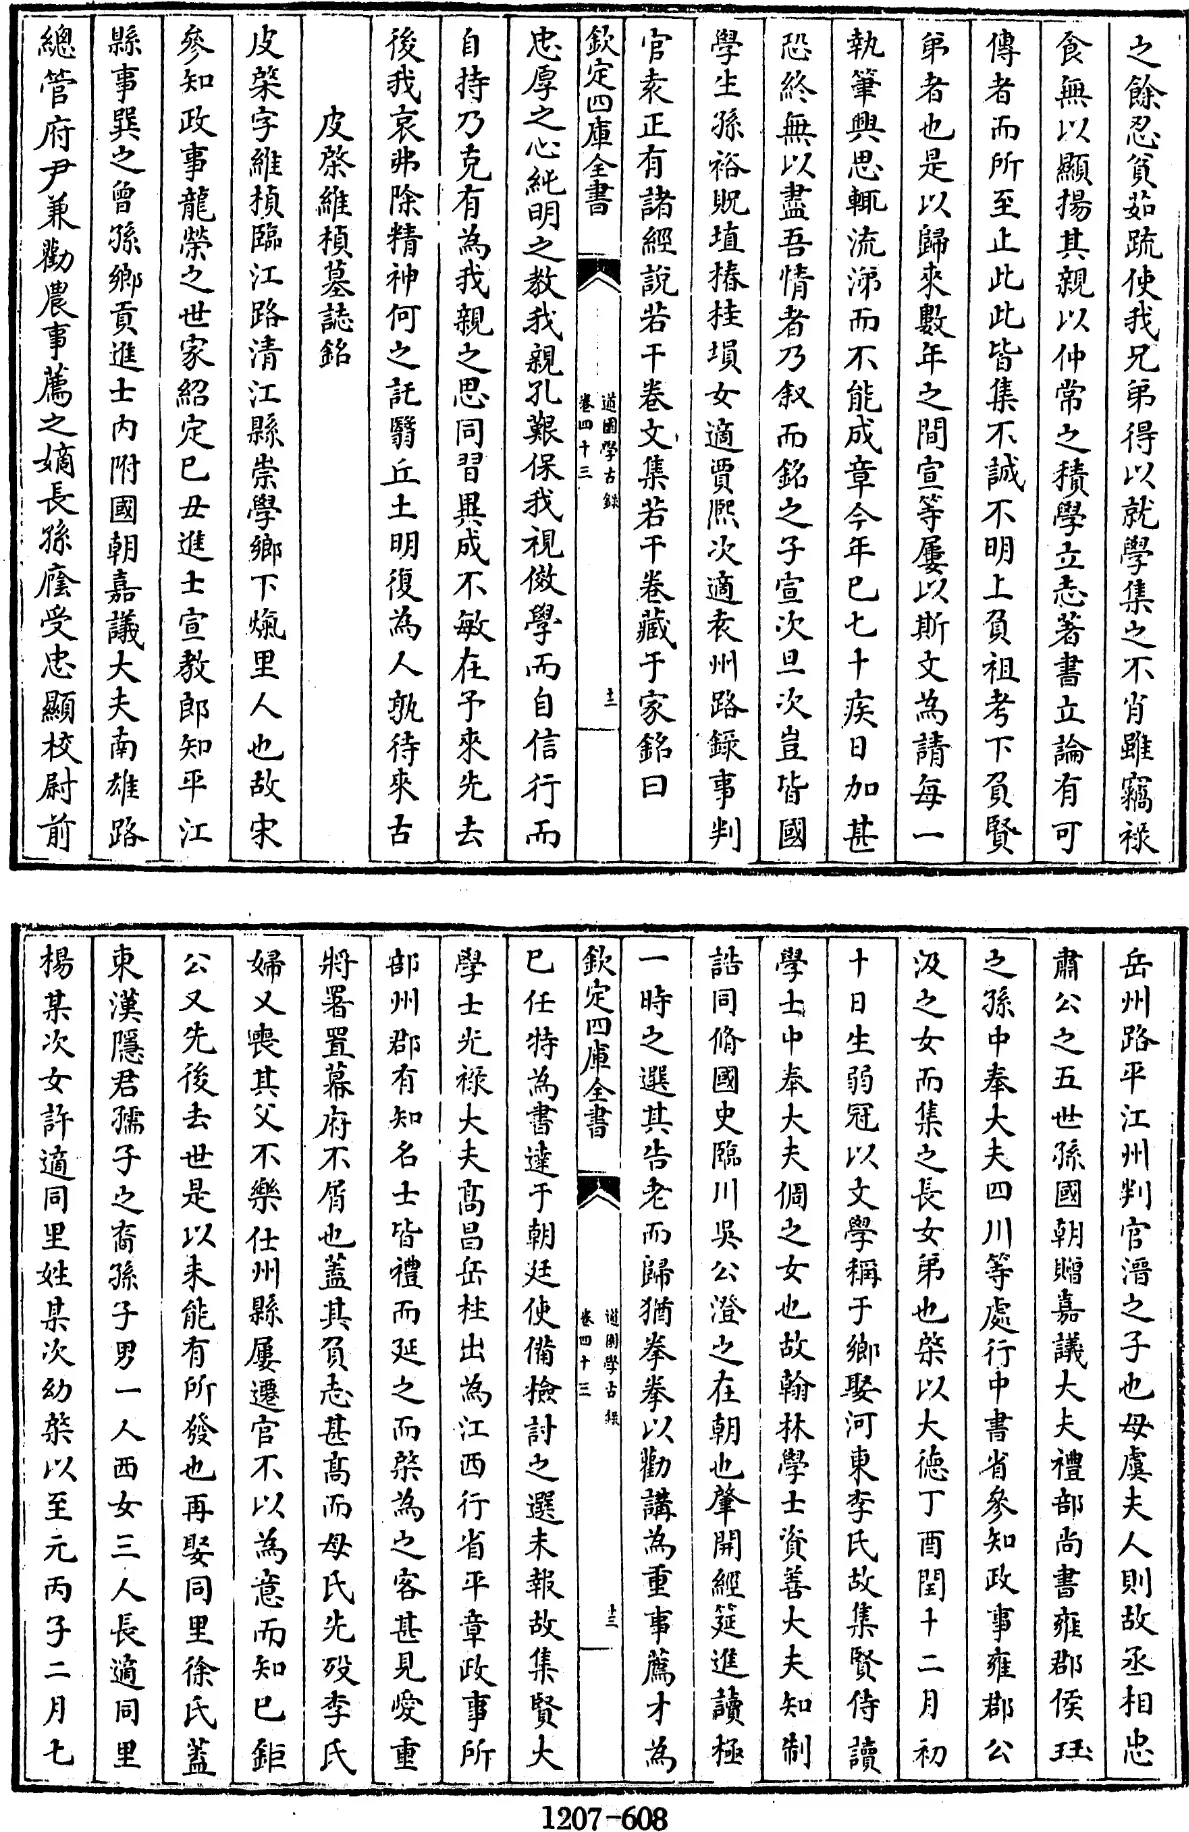 之餘忍貧茹疏使我兄弟得以就學集之不肖雖竊祿
食無以顯揚其親以仲常之積學立志著書立論有可
傳者而所至止此此皆集不誠不明上負祖考下負賢
弟者也是以歸來數年之間宣等屢以斯文為請每一
執筆興思輒流涕而不能成章今年已七十疾日加甚
恐終無以盡吾情者乃叙而銘之子宣次旦次豈皆國
學生孫裕貺埴椿桂塤女適賈熙次適袁州路錄事判
官袁正有諸經說若干卷文集若干卷藏于家銘曰
欽定四庫全書
道園學古錄
卷四十三
十二
忠厚之心純明之教我親孔艱保我視傚學而自信行而
自持乃克有為我親之思同習異成不敏在予來先去
後我哀弗除精神何之託翳丘土明復為人孰待來古
皮棨維楨墓誌銘
皮棨字維楨臨江路清江縣崇學鄉下㷟里人也故宋
參知政事龍榮之世家紹定己丑進士宣教郎知平江
縣事巽之曾孫鄉貢進士內附國朝嘉議大夫南雄路
總管府尹兼勸農事薦之嫡長孫廕受忠顯校尉前
岳州路平江州判官溍之子也母虞夫人則故丞相忠
肅公之五世孫國朝贈嘉議大夫禮部尚書雍郡侯珏
之孫中奉大夫四川等處行中書省參知政事雍郡公
汲之女而集之長女弟也棨以大德丁酉閏十二月初
十日生弱冠以文學稱于鄉娶河東李氏故集賢侍讀
學士中奉大夫倜之女也故翰林學士資善大夫知制
誥同脩國史臨川吳公澄之在朝也肇開經筵進讀極
一時之選其告老而歸猶拳拳以勸講為重事薦才為
欽定四庫全書
道園學古錄
卷四十三
十三
已任特為書達于朝廷使備檢討之選未報故集賢大
學士光祿大夫高昌岳柱出為江西行省平章政事所
部州郡有知名士皆禮而延之而棨為之客甚見愛重
將署置幕府不屑也蓋其負志甚高而母氏先歿李氏
婦又喪其父不樂仕州縣屢遷官不以為意而知已鉅
公又先後去世是以未能有所發也再娶同里徐氏蓋
東漢隱君孺子之裔孫子男一人西女三人長適同里
楊某次女許適同里姓某次幼棨以至元丙子二月七
1207-608